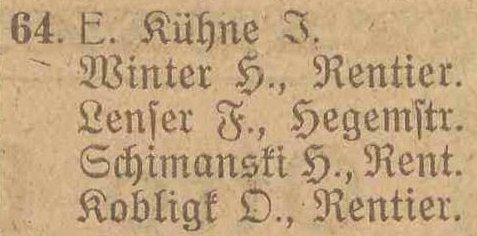 64. E. Kühne J.
Winter H., Rentier.
Lenser F., Hegemstr.
Schimanski H., Rent.
Kobligk O., Rentier.